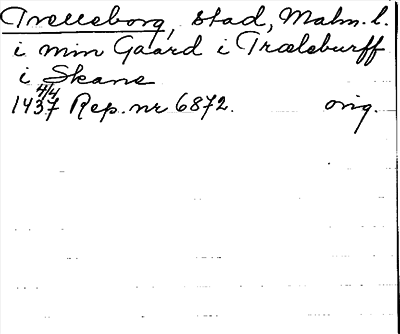 Trelleborg, stad, Malm. l.
i min Gaard i Træleburff
i Skane
4/4
1437 Rep. nr 6872. orig.